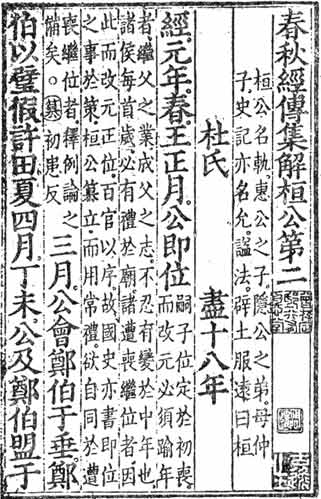 春秋經傳集解桓公第二
桓公名軌惠公之子隱公之弟母仲
子史記亦名允諡法辟土服遠曰桓
杜氏 盡十八年
經元年春王正月公即位
嗣子位定於初喪
而改元必須踰年
者繼父之業成父之志不忍有變於中年也
諸侯每首歲必有禮於廟諸遭喪繼位者因
此而改元正位百官以序故國史亦書即位
之事於策桓公篡立而用常禮欲自同於遭
喪繼位者釋例論之
備矣篡初患反
三月公會鄭伯于垂鄭
伯以璧假許田夏四月丁未公及鄭伯盟于